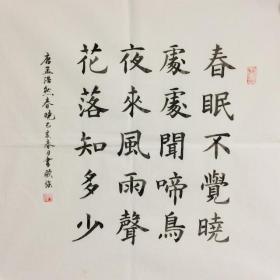 春眠不覺曉
處處聞啼鳥
夜來風雨聲
花落知多少
唐孟浩然春曉己亥春月書